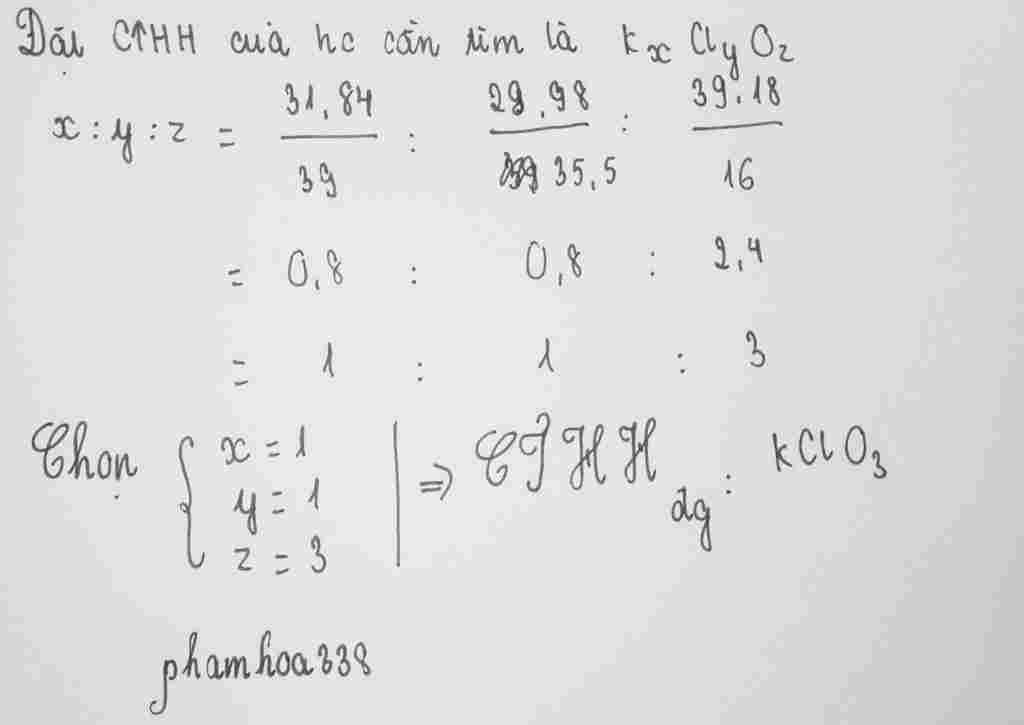 Đặt CTHH của hc cần tìm là KxClyOz
x : y : z = 31,84/39 : 29,98/35,5 : 39,18/16
= 0,8 : 0,8 : 2,4
= 1 : 1 : 3
Chọn { x = 1
y = 1
z = 3 | => CTHH đg : KClO3
phamhoa338